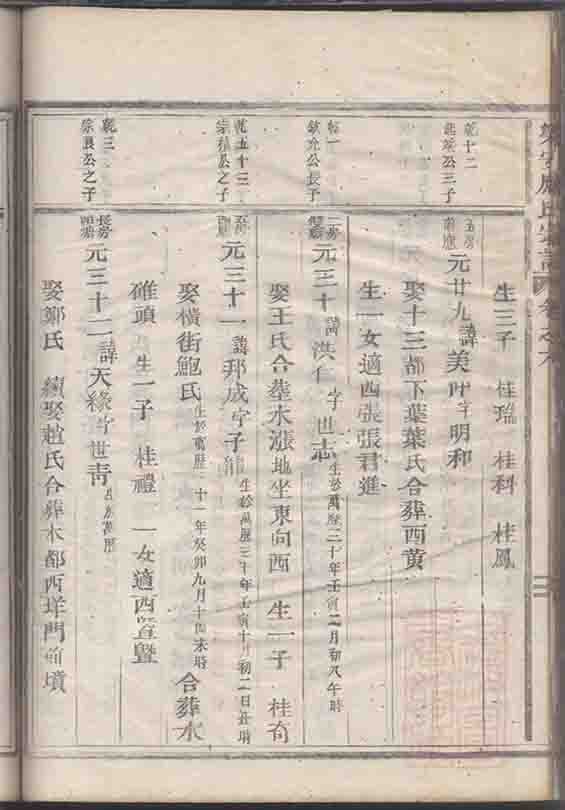 生三子 桂瑞 桂科 桂鳳
乾十二
公三子
元廿九諱美叶字明和
娶十三都下葉葉氏合葬西黄
生一女適西張張君進
公長子
二房
元三十諱洪仁字世志生於萬曆三十年壬寅二月初八午時
娶王氏合葬水漲地坐東向西 生一子 桂奇
乾五十三
公之子
元三十一諱邦成字子 生於萬歷三十年壬寅十月初二日丑時
娶橫街鮑氏生於萬歷三十一年癸卯九月十四未時 合葬水
碓頭 生一子 桂禮 一女適西暨暨
乾三
宗良公之子
長房
元三十二諱天緣字世青
娶鄭氏 續娶趙氏合葬水都西垟門前墳